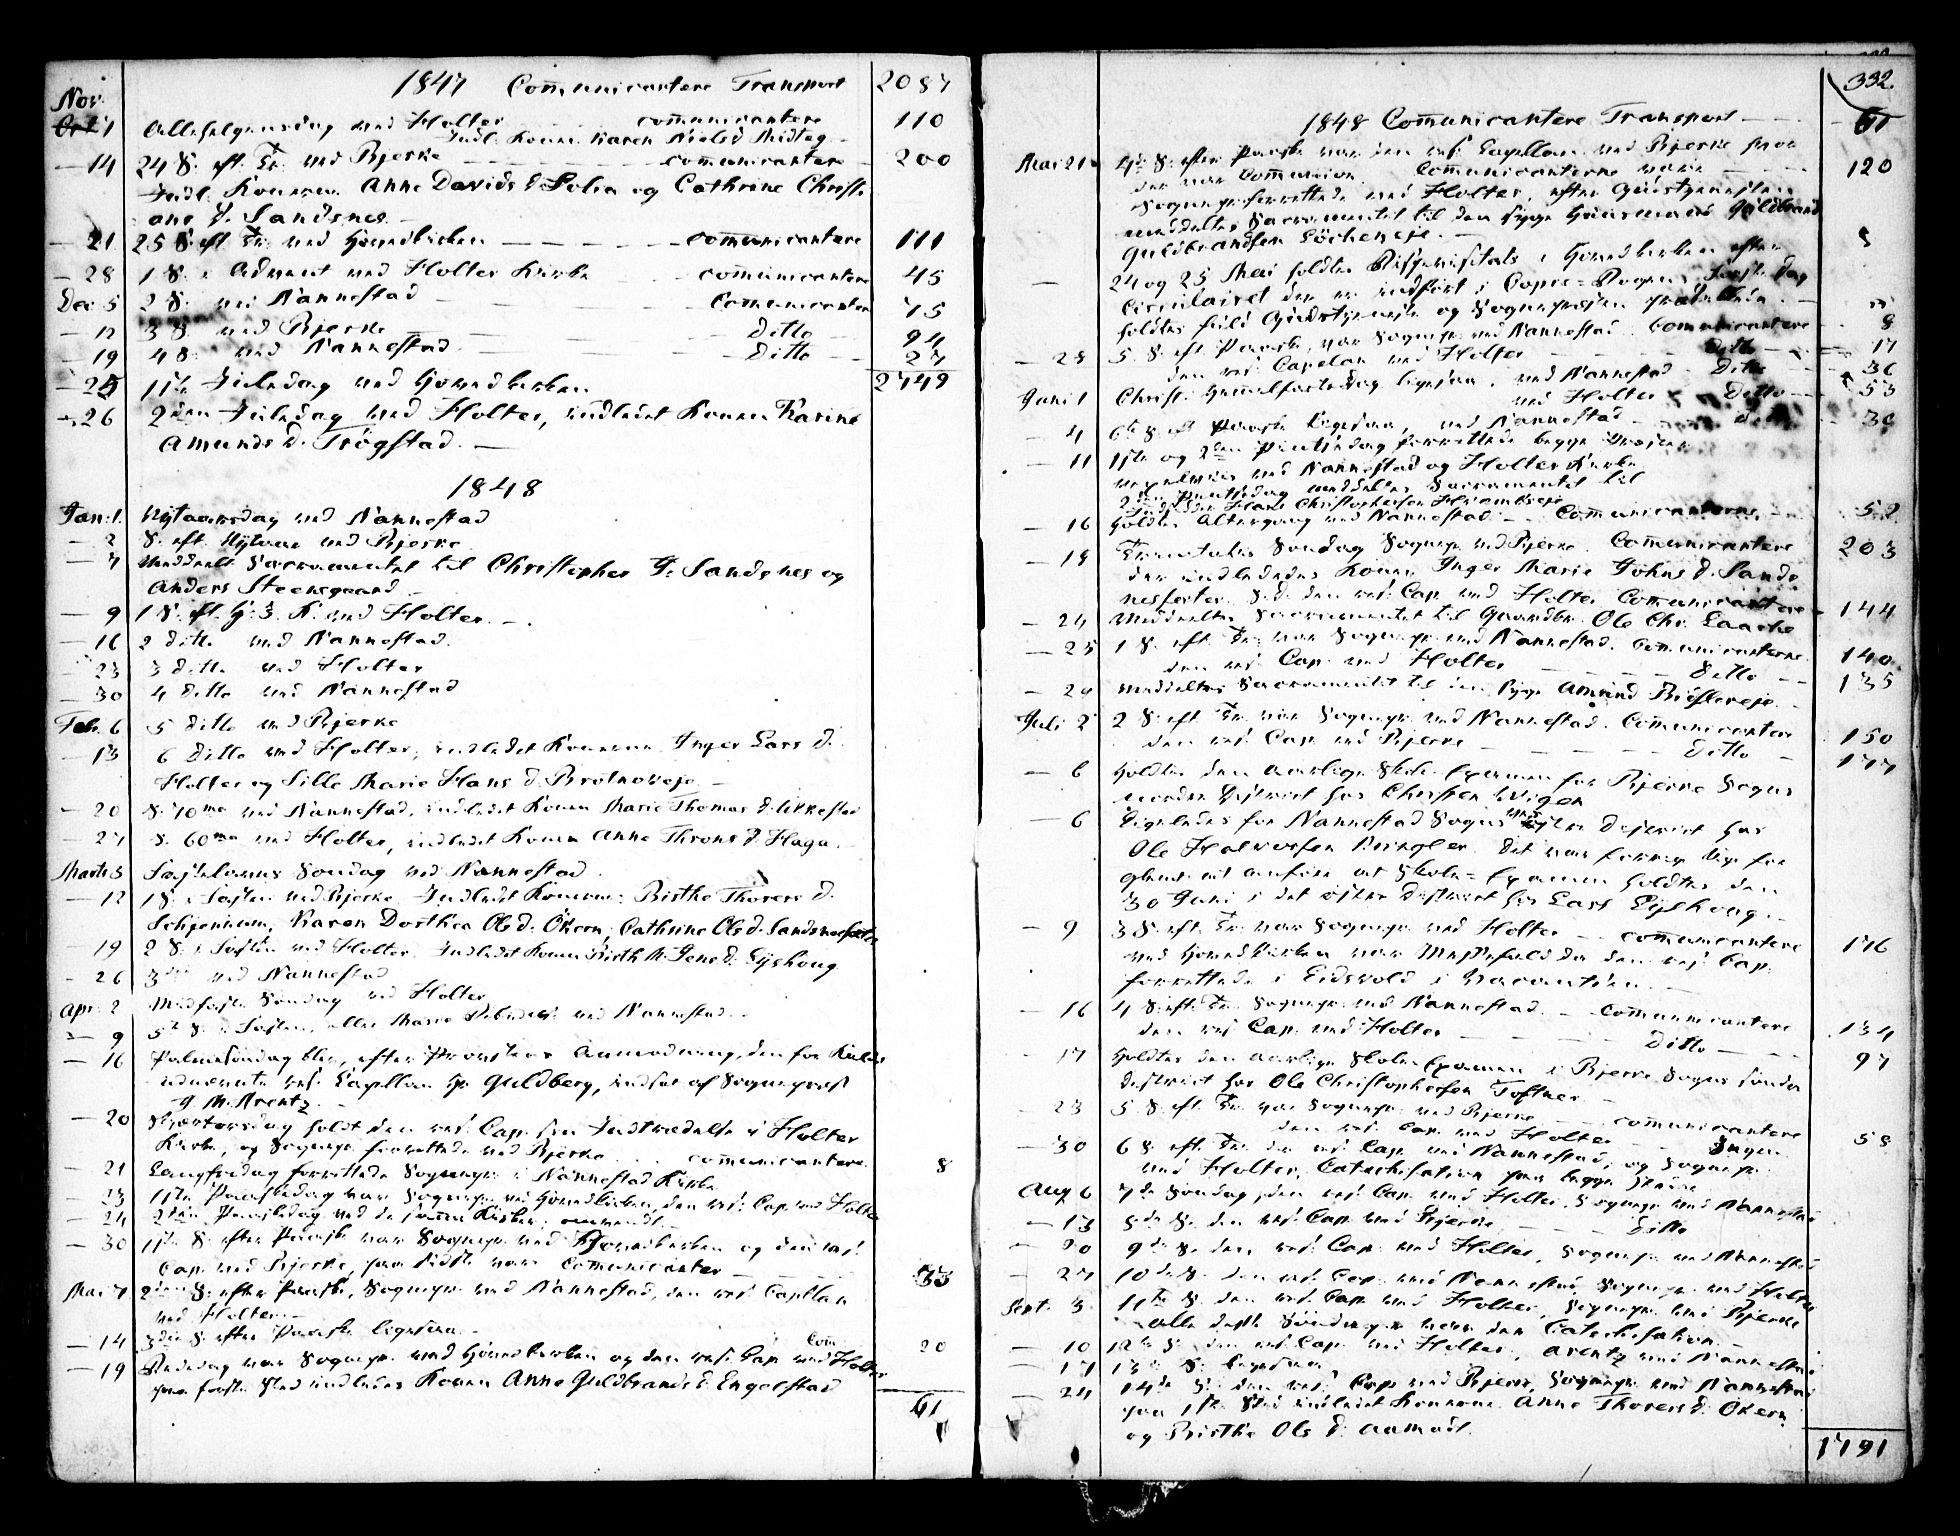 1847 Comunicantere Transport 2087
Nov. 1 Allehelgensdag ved Holter communicantere 110
Indl. Konen Karen Niels d. Midteg
— 14 24 S. eft. Tr. ved Bjerke comunicantere 200
Indl. Konerne Anne Davids d. Solia og Cathrine Christi-
ans d. Sandsnes.
— 21 25 S. eft. Tr. ved Hovedkirken comunicantere 111
— 28 1 S. i Advent ved Holter Kirke comunicantere 45
Dec. 5 2 S. ved Nannestad Comunicanter 75
— 12 3 S. ved Bjerke Ditto 94
— 19 4 S. ved Nannestad Ditto 27
— 25 1ste Juledag ved Hovedkirken 2749
— 26 2den Juledag ved Holter, indledet Konen Karine
Amunds d. Trögstad.
1848
Jan. 1. Nytaarsdag ved Nannestad
— 2 S. eft. Nytaar ved Bjerke
— 7 Meddeelt Sacramentet til Christopher J. Sandsnes og
Anders Steensgaard.
— 9 1 S. eft. H. 3 K. ved Holter.
— 16 2 Ditto ved Nannestad.
— 23 3 Ditto ved Holter
— 30 4 Ditto ved Nannestad
Feb. 6 5 Ditto ved Bjerke
— 13 6 Ditto ved Holter, indledet Konerne Inger Lars d.
Holter og Sille Marie Hans d. Brotnoveje
— 20 S. 70ma ved Nannestad, indledet Konen Marie Thomas d. Ukkestad
— 27 S. 60ma ved Holter, indledet Konen Anne Throns d. Haga.
Marts 5 Fastelavns Søndag ved Nannestad
— 12 1 S. i Fasten ved Bjerke. Indledet Konerne: Birthe Thorers d.
Karen Dorthea Ols d. Ökern, Cathrine Ols d.
19 2 S. i Fasten ved Holter. Indledet Konen Birth M. Jens d. Eyshoug
— 26 3die ved Nannestad
Apr. 2 Midfaste Søndag ved Holter
— 9 5te S. i Fasten, eller Mariæ ved Nannestad.
— 16 Palmesøndag blev, efter Provstens Anmodning, den for
res. Capellan Hr. Guldberg, indsat af Sognepræst
J. M. Arentz.
— 20 Skjærtorsdag holdt den res. Cap. sin Indtrædelse i Holter
Kirke, og Sognepr. forrettede ved Bjerke comunicantere 8
— 21 Langfredag forrettede Sognepr. i Nannestad Kirke
— 23 1ste Paaskedag var Sognepr. ved Hovedkirken, den res. Cap. ved Holter
— 24 2den Paaskedag ved de samme Kirker, omvendt
— 30 1ste S. efter Paaske var Sognepr. ved Hovedkirken og den res.
Cap. ved Bjerke, paa sidste var Comunicanter 33
Mai 7 2den S. efter Paaske, Sognepr. ved Nannestad, den res. Capellan
ved Holter.
— 14 3die S. efter Paaske ligesaa Com. 20
— 19 Bededag var Sognepr. ved Hovedkirken og den res. Cap. ved Holter
paa første Sted indledes Konen Anne Guldbrands d. Engelstad
61
332
1848 Comunicantere Transport 61
Mai 21 4de S. efter Paaske var den res. Capellan ved Bjerke hvor
der var Communion. Comunicanterne vare 120
Sognepr. forrettede ved Holter, efter Gudstjenesten
meddeeltes Sacramentet til den syge Huusmand Guldbrand
Guldbrandsen
— 24 og 25 Mai holdtes Bispevisitats i Hovedkirken efter
Circulairet der er indført i Copie-Bogen. Første Dag
holdtes fuld Gudstjeneste og Sognepræsten
— 28 5 S. eft. Paaske, var Sognepr. ved Nannestad. Comunicantere 8
den res. Capelan ved Holter Ditto 17
Juni 1 Christi Himmelfartsdag ligesaa, ved Nannestad Ditto 36
ved Holter Ditto 53
— 4 6te S. eft. Paaske ligesaa, ved Nannestad 30
— 11 1ste og 2den Pintsedag forrettede begge Præster
vexelviis ved Nannestad og Holter Kirke
2den Pintsedag meddeeltes Sacramentet til
Hans Christophersen
— 16 Holdtes Altergang ved Nannestad Comunicanterne 52
— 18 Trinitatis Søndag Sognepr. ved Bjerke. Comunicantere 203
der indledes Konen Inger Marie Johns d. Sands-
nesseter. S. D. den res. Cap. ved Holter Comunicantere 144
— 24 Meddeeltes Sacramentet til Gaardbr. Ole Chr. Laache
— 25 1 S. eft. Tr. var Sognepr. ved Nannestad. Comunicanterne 140
den res. Cap. ved Holter Ditto 135
Meddeeltes Sacramentet til den syge Amund
Juli 2 2 S. eft. Tr. var Sognepr. ved Nannestad. Comunicantere 150
den res. Cap. ved Bjerke Ditto 177
— 6 Holdtes den aarlige Skole-Examen for Bjerke Sogns
nordre District hos Christen
— 6 Ligeledes for Nannestad Sogns District hos
Ole Halvorsen Ringler. Det var forrige Uge for-
glemt at anføre at Skole-Examen holdtes den
30 Juni i det østre District hos Lars Eyshoug.
— 9 3 S. eft. Tr. var Sognepr. ved Holter comunicantere 176
ved Hovedkirken var Messefald da den res. Cap.
forrettede i Eidsvold i Vacantsen.
— 16 4 S. eft. Tr. Sognepr. ved Nannestad comunicantere 134
den res. Cap. ved Holter Ditto 97
— 17 Holdtes den aarlige Skole-Examen i Bjerke Sogns søndre
District hos Ole Christophersen Toftner
— 23 5 S. eft. Tr. var Sognepr. ved Bjerke comunicantere 58
den res. Cap. ved Holter Ingen
— 30 6 S. eft. Tr. den res. Cap. ved Nannestad, og Sognepr.
ved Holter, Catechisation paa begge Steder
Aug. 6 7de Søndag, den res. Cap. ved Holter. Sognepr. ved Nannestad
— 13 8de S. den res. Cap. ved Bjerke Ditto
— 20 9de S. den res. Cap. ved Holter, Sognepr. ved Nannestad
— 27 10de S. den res. Cap. ved Nannestad, Sognepr. ved Holter
Sept. 3 11te S. den res. Cap. ved Holter, Sognepr. ved Bjerke
alle disse Søndager var der Catechisation
— 10 12te S. den res. Cap. ved Holter, Arentz ved Nannestad
— 17 13de S. ligesaa
— 24 14de S. den res. Cap. ved Bjerke, Sognepr. ved Nannestad
paa 1ste Sted indledet Konerne Anne Thorers d. Ökern
og Birthe Ols d. Aamodt.
1791